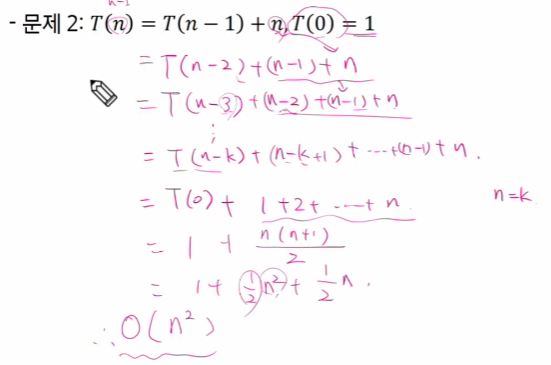 n-1
- 문제 2: T(n) = T(n − 1) + n, T(0) = 1
= T(n-2) + (n-1) + n
= T(n-3) + (n-2) + (n-1) + n
⋮
= T(n-k) + (n-k+1) + ----+(n-1) + n.
= T(0) + 1+2+ ----+ n. n=k
= 1 + n(n+1)/2
= 1 + 1/2 n² + 1/2 n.
∴ O(n²)